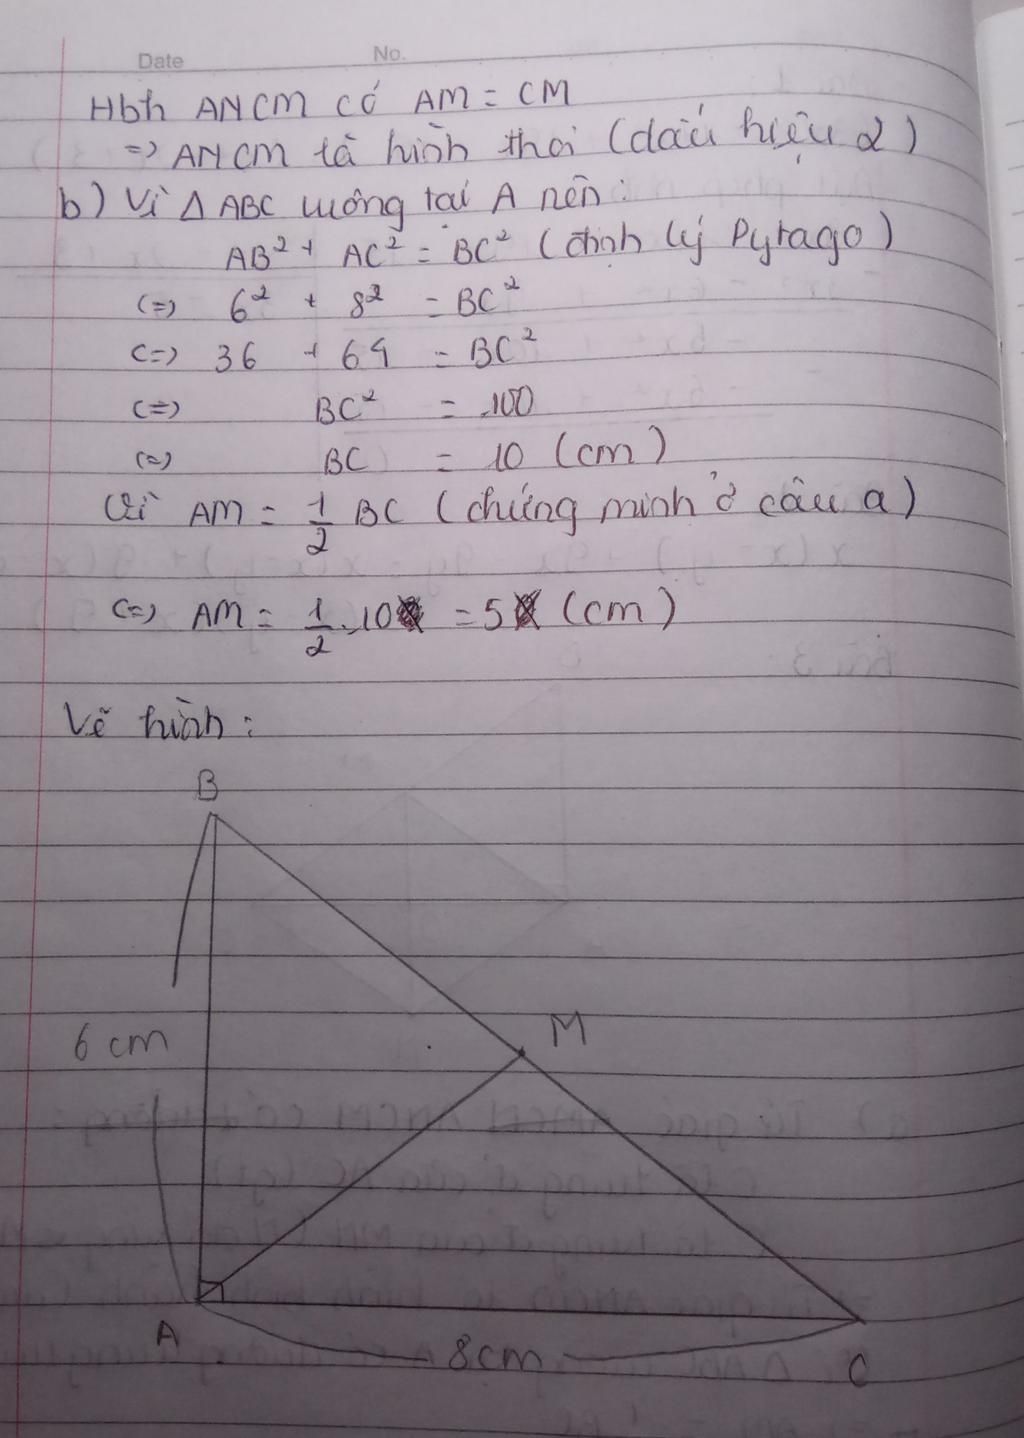 Date No.
Hbh ANCM có AM = CM
=> ANCM là hình thoi (dấu hiệu 2)
b) Vì Δ ABC vuông tại A nên:
AB² + AC² = BC² (định lý Pytago)
(=) 6² + 8² = BC²
(=) 36 + 64 = BC²
(=) BC² = 100
(=) BC = 10 (cm)
Vì AM = 1/2 BC (chứng minh ở câu a)
(=) AM = 1/2 . 10 = 5 (cm)
Vẽ hình:
B
M
6 cm
A
8cm
C